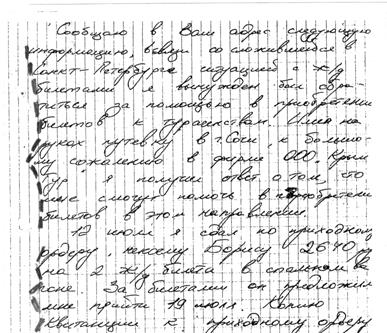 Сообщаю в Ваш адрес следующую
информацию, в связи со сложившейся в
Санкт-Петербурге ситуацией с ж/д
билетами я вынужден был обра-
титься за помощью в приобретении
билетов к турагентствам. Имея на
руках путевку в г. Сочи, к большо-
му сожалению в фирме ООО "Крым
Тур" я получил ответ о том, что
мне смогут помочь в приобретении
билетов в этом направлении.
12 июля я сдал по приходному
ордеру, некоему Борису 2640 р
на 2 ж/д билета в спальном ва
гоне. За билетами он предложил
мне прийти 19 июля. Копию
квитанции к приходному ордеру